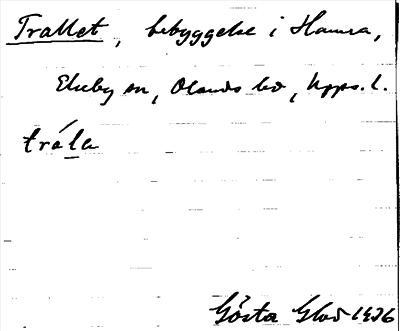 Trallet, bebyggelse i Hamra,
Ekeby sn, Olands hd, Upps. l.
trála
Gösta Glad 1936